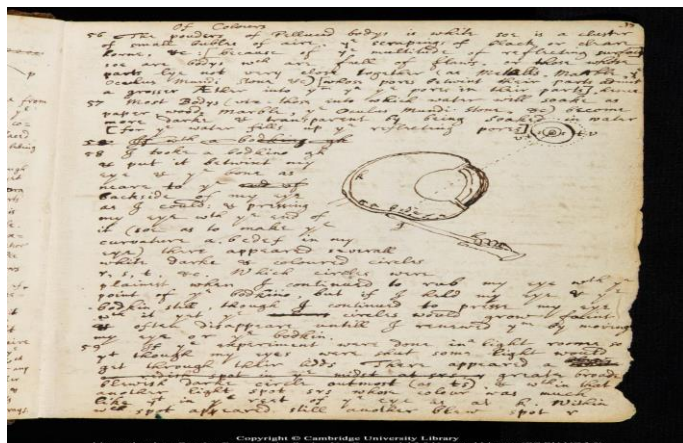 Of Colours
56 The pouders of Pellucid bodys is white soe is a cluster
of small bubles of aire, ye scrapings of black or cleare
horne, &c: [because of ye multitude of reflecting surfaces]
soe are bodys wch are full of flaws, or those whose
parts lye not very close together (as Metalls, Marble, ye
Oculus Mundi Stone &c) [whose pores betwixt their parts admit
a grosser Æther into ym yn ye pores in their parts], hence
57 Most Bodys (viz: those into which water will soake as
paper, wood, Marble, ye Oculus Mundi Stone, &c) become
more darke & transparent by being soaked in water
[for ye water fills up ye reflecting pores]
58 I tooke a bodkine gh
& put it betwixt my
eye & ye bone as
neare to ye
backside of my eye
as I could: & pressing
my eye wth ye end of
it (soe as to make ye
curvature a, bcdef in my
eye) there appeared severall
white darke & coloured circles
r, s, t, &c. Which circles were
plainest when I continued to rub my eye wth ye
point of ye bodkine, but if I held my eye & ye
bodkin still, though I continued to presse my eye
wth it yet ye circles would grow faint
& often disappeare untill I renewed ym by moving
my eye or ye bodkin.
59 If ye experiment were done in a light roome so
yt though my eyes were shut some light would
get through their lidds There appeared a
greate broade
blewish darke circle outmost (as ts), & wthin that
another light spot srs whose colour was much
like yt in ye rest of ye eye as at k. Within
wch spot appeared still another blew spot r
Copyright © Cambridge University Library